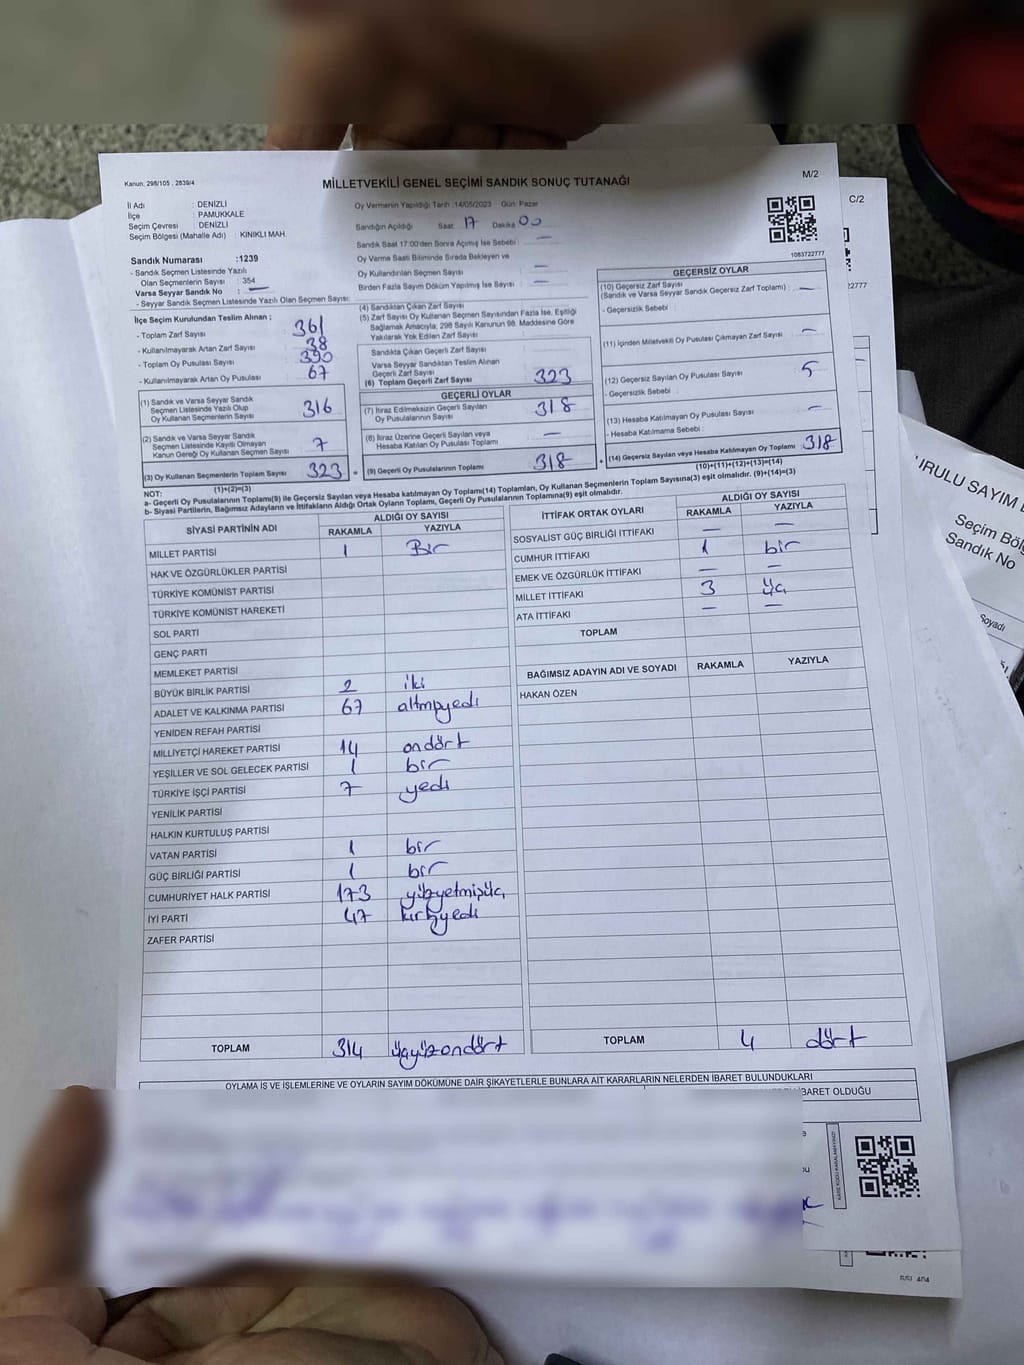 Kanun; 298/105 , 2839/4
MİLLETVEKİLİ GENEL SEÇİMİ SANDIK SONUÇ TUTANAĞI
M/2
C/2
İl Adı : DENİZLİ
İlçe : PAMUKKALE
Seçim Çevresi : DENİZLİ
Seçim Bölgesi (Mahalle Adı) : KINIKLI MAH.
Oy Vermenin Yapıldığı Tarih :14/05/2023 Gün: Pazar
Sandığın Açıldığı Saat: 17 Dakika 00
Sandık Saat 17:00'den Sonra Açılmış İse Sebebi : —
Oy Verme Saati Bitiminde Sırada Bekleyen ve
Oy Kullandırılan Seçmen Sayısı : —
Birden Fazla Sayım Döküm Yapılmış İse Sayısı : —
1083722777
2777
Sandık Numarası :1239
- Sandık Seçmen Listesinde Yazılı
Olan Seçmenlerin Sayısı : 354
Varsa Seyyar Sandık No : —
- Seyyar Sandık Seçmen Listesinde Yazılı Olan Seçmen Sayısı:
İlçe Seçim Kurulundan Teslim Alınan ;
- Toplam Zarf Sayısı : 361
- Kullanılmayarak Artan Zarf Sayısı : 38
- Toplam Oy Pusulası Sayısı : 390
- Kullanılmayarak Artan Oy Pusulası : 67
(1) Sandık ve Varsa Seyyar Sandık
Seçmen Listesinde Yazılı Olup
Oy Kullanan Seçmenlerin Sayısı 316
(2) Sandık ve Varsa Seyyar Sandık
Seçmen Listesinde Kayıtlı Olmayan
Kanun Gereği Oy Kullanan Seçmen Sayısı 7
(3) Oy Kullanan Seçmenlerin Toplam Sayısı 323
(1)+(2)=(3)
(4) Sandıktan Çıkan Zarf Sayısı :
(5) Zarf Sayısı Oy Kullanan Seçmen Sayısından Fazla İse, Eşitliği
Sağlamak Amacıyla; 298 Sayılı Kanunun 98. Maddesine Göre
Yakılarak Yok Edilen Zarf Sayısı :
Sandıkta Çıkan Geçerli Zarf Sayısı
Varsa Seyyar Sandıktan Teslim Alınan
Geçerli Zarf Sayısı
(6) Toplam Geçerli Zarf Sayısı 323
GEÇERLİ OYLAR
(7) İtiraz Edilmeksizin Geçerli Sayılan
Oy Pusulalarının Sayısı 318
(8) İtiraz Üzerine Geçerli Sayılan veya
Hesaba Katılan Oy Pusulası Toplamı —
(9) Geçerli Oy Pusulalarının Toplamı 318
GEÇERSİZ OYLAR
(10) Geçersiz Zarf Sayısı
(Sandık ve Varsa Seyyar Sandık Geçersiz Zarf Toplamı) : —
- Geçersizlik Sebebi :
(11) İçinden Milletvekili Oy Pusulası Çıkmayan Zarf Sayısı —
(12) Geçersiz Sayılan Oy Pusulası Sayısı 5
- Geçersizlik Sebebi :
(13) Hesaba Katılmayan Oy Pusulası Sayısı —
- Hesaba Katılmama Sebebi :
(14) Geçersiz Sayılan veya Hesaba Katılmayan Oy Toplamı 318
(10)+(11)+(12)+(13)=(14)
NOT:
a- Geçerli Oy Pusulalarının Toplamı(9) ile Geçersiz Sayılan veya Hesaba katılmayan Oy Toplamı(14) Toplamları, Oy Kullanan Seçmenlerin Toplam Sayısına(3) eşit olmalıdır. (9)+(14)=(3)
b- Siyasi Partilerin, Bağımsız Adayların ve İttifakların Aldığı Ortak Oyların Toplamı, Geçerli Oy Pusulalarının Toplamına(9) eşit olmalıdır.
SİYASİ PARTİNİN ADI ALDIĞI OY SAYISI
RAKAMLA YAZIYLA
MİLLET PARTİSİ 1 Bir
HAK VE ÖZGÜRLÜKLER PARTİSİ
TÜRKİYE KOMÜNİST PARTİSİ
TÜRKİYE KOMÜNİST HAREKETİ
SOL PARTİ
GENÇ PARTİ
MEMLEKET PARTİSİ
BÜYÜK BİRLİK PARTİSİ 2 iki
ADALET VE KALKINMA PARTİSİ 67 altmışyedi
YENİDEN REFAH PARTİSİ
MİLLİYETÇİ HAREKET PARTİSİ 14 ondört
YEŞİLLER VE SOL GELECEK PARTİSİ 1 bir
TÜRKİYE İŞÇİ PARTİSİ 7 yedi
YENİLİK PARTİSİ
HALKIN KURTULUŞ PARTİSİ
VATAN PARTİSİ 1 bir
GÜÇ BİRLİĞİ PARTİSİ 1 bir
CUMHURİYET HALK PARTİSİ 173 yüzyetmişüç
İYİ PARTİ 47 kırkyedi
ZAFER PARTİSİ
TOPLAM 314 üçyüzondört
İTTİFAK ORTAK OYLARI ALDIĞI OY SAYISI
RAKAMLA YAZIYLA
SOSYALİST GÜÇ BİRLİĞİ İTTİFAKI — —
CUMHUR İTTİFAKI 1 bir
EMEK VE ÖZGÜRLÜK İTTİFAKI — —
MİLLET İTTİFAKI 3 üç
ATA İTTİFAKI — —
TOPLAM
BAĞIMSIZ ADAYIN ADI VE SOYADI RAKAMLA YAZIYLA
HAKAN ÖZEN
TOPLAM 4 dört
OYLAMA İŞ VE İŞLEMLERİNE VE OYLARIN SAYIM DÖKÜMÜNE DAİR ŞİKAYETLERLE BUNLARA AİT KARARLARIN NELERDEN İBARET BULUNDUKLARI
İBARET OLDUĞU
URULU SAYIM
Seçim Böl
Sandık No
Soyadı